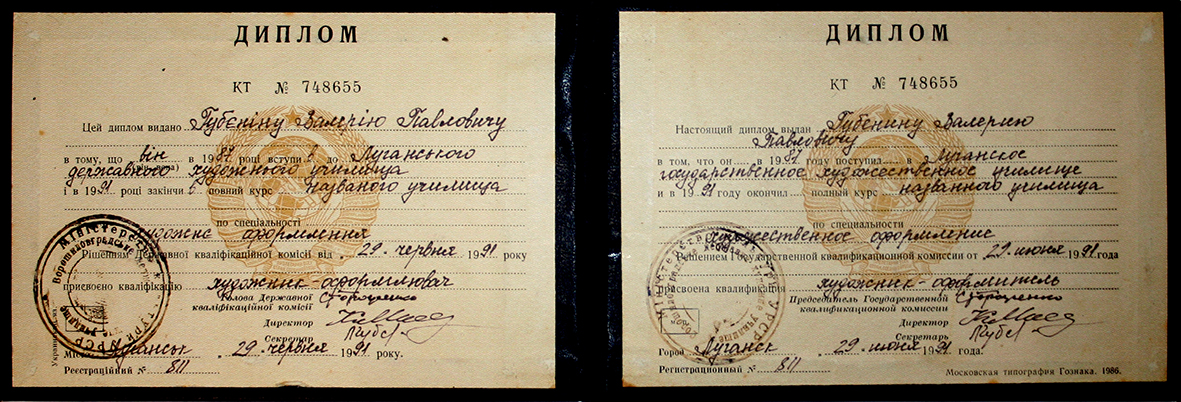 ДИПЛОМ
КТ № 748655
Цей диплом видано Губєніну Валерію Павловичу
в тому, що він в 1987 році вступи в до Луганського
(він, вона)
державного художнього училища
і в 1991 році закінчи в повний курс названого училища
по спеціальності
художнє оформлення
Рішенням Державної кваліфікаційної комісії від 29 червня 1991 року
присвоєно кваліфікацію художник-оформлювач
Голова Державної
кваліфікаційної комісії
Директор
Секретар
Місто Луганськ 29 червня 1991 року.
Реєстраційний № 811
ДИПЛОМ
КТ № 748655
Настоящий диплом выдан Губенину Валерию
Павловичу
в том, что он в 1987 году поступил в Луганское
государственное художественное училище
и в 1991 году окончил полный курс названного училища
по специальности
художественное оформление
Решением Государственной квалификационной комиссии от 29 июня 1991 года
присвоена квалификация художник-оформитель
Председатель Государственной
квалификационной комиссии
Директор
Секретарь
Город Луганск 29 июня 1991 года.
Регистрационный № 811
Московская типография Гознака. 1986.